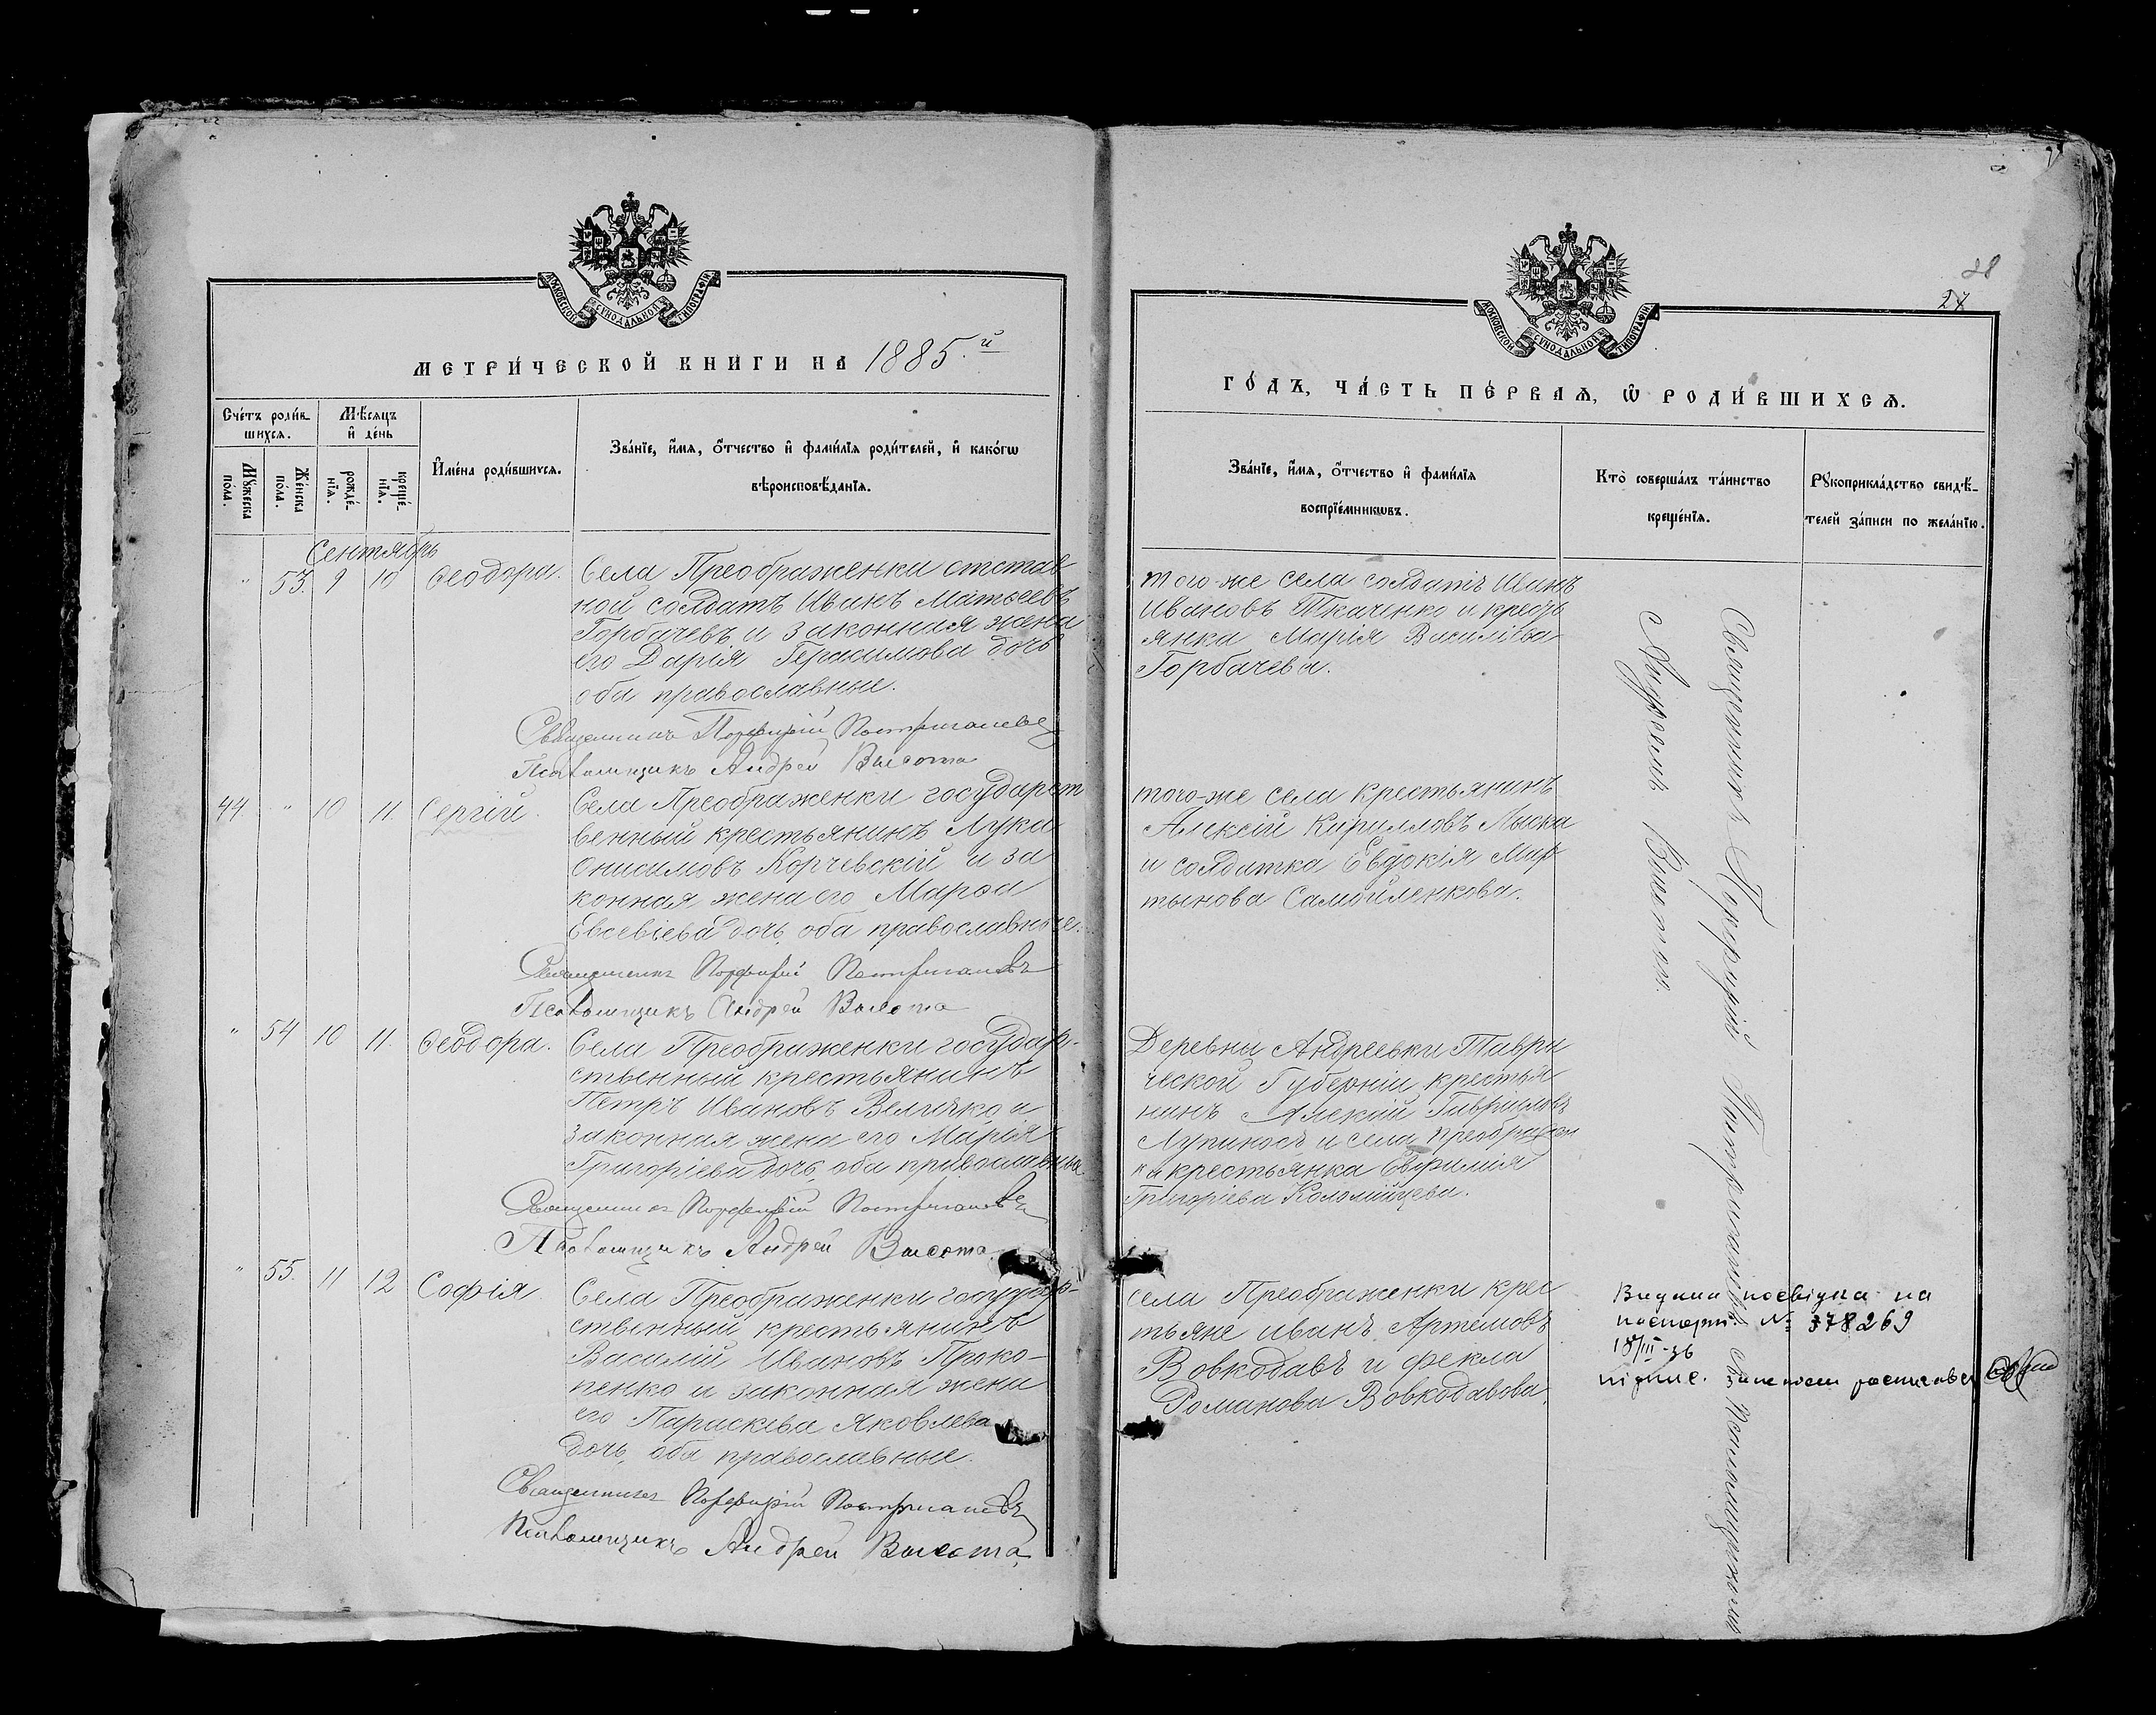 МОСКОВСКОЙ СѴНОДАЛЬНОЙ ТИПОГРАФІИ
МЕТРИ́ЧЕСКОЙ КНИ́ГИ НА 1885.й
Сче́тъ роди́в-
шихсѧ.
Мѣ́сѧцъ
и҆ де́нь
И҆мена̀ роди́вшихсѧ.
Зва́нїе, и҆́мѧ, ѻ҆́тчество и҆ фами́лїѧ роди́телей, и҆ како́гѡ
вѣроисповѣ́данїѧ.
Мꙋ́жеска
по́ла.
Же́нска
по́ла.
рожде́-
нїѧ.
креще́-
нїѧ.
Сентябрь
" 53. 9 10 Ѳеодора. Села Преображенки отстав
ной солдатъ Иванъ Матѳеевъ
Горбачевъ и законная жена
его Дарія Герасимова дочь
оба православные.
Священникъ Порфирій Постригановъ
Псаломщикъ Андрей Высота
44. " 10 11. Сергій. Села Преображенки государст
венный крестьянинъ Лука
Онисимовъ Корчевскій и за
конная жена его Марѳа
Евсевіева дочь, оба православные.
Священникъ Порфирій Постригановъ
Псаломщикъ Андрей Высота
" 54 10 11. Ѳеодора. Села Преображенки государ-
ственный крестьянинъ
Петръ Ивановъ Величко и
законная жена его Марія
Григоріева дочь, оба православные
Священникъ Порфирій Постригановъ
Псаломщикъ Андрей Высота.
" 55. 11 12 Софія Села Преображенки государ-
ственный крестьянинъ
Василій Ивановъ Проко-
пенко и законная жена
его Параскева Яковлева
дочь, оба православные.
Священникъ Порфирій Постригановъ
Псаломщикъ Андрей Высота.
28
27
МОСКОВСКОЙ СѴНОДАЛЬНОЙ ТИПОГРАФІИ
ГО́ДЪ, ЧА́СТЬ ПЕ́РВАѦ, Ѽ РОДИ́ВШИХСѦ.
Зва́нїе, и҆́мѧ, ѻ҆́тчество и҆ фами́лїѧ
воспрїе́мникѡвъ.
Кто̀ соверша́лъ та́инство
креще́нїѧ.
Рꙋкоприкла́дство свидѣ́-
телей за́писи по жела́нїю.
того-же села солдатъ Иванъ
Ивановъ Ткаченко и кресть
янка Марія Василіева
Горбачева.
того-же села крестьянинъ
Алексій Кирилловъ Лыска
и солдатка Евдокія Мар
тынова Самойленкова.
Деревни Андреевки Таври
ческой Губерніи крестья
нинъ Алексій Гавриловъ
Лупиносъ и села Преображен
ки крестьянка Евфимія
Григоріева Коломійцева.
села Преображенки крес
тьяне Иванъ Артемовъ
Вовкодавъ и Ѳекла
Романова Вовкодавова.
Священникъ Порфирій Постригановъ съ Псаломщикомъ
Андреемъ Высотою.
Видана посвідка на
паспорт № 378269
18/III-36